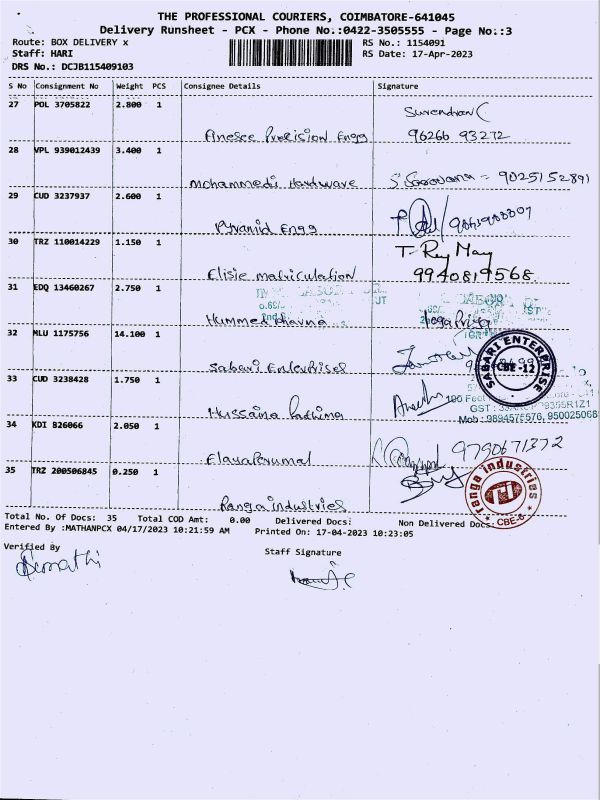 THE PROFESSIONAL COURIERS, COIMBATORE-641045
Delivery Runsheet - PCX - Phone No.:0422-3505555 - Page No.:3
Route: BOX DELIVERY x
RS No.: 1154091
Staff: HARI
RS Date: 17-Apr-2023
DRS No.: DCJB115409103
S No Consignment No Weight PCS Consignee Details Signature
27 POL 3705822 2.800 1
Surendran C
Anesee Precision Engg 96266 93272
28 VPL 939012439 3.400 1
Mohammedi Hardware S. Saravana - 9025152891
29 CUD 3237937 2.600 1
Pyramid Engg
30 TRZ 110014229 1.150 1
Elisie matriculation 9940819568
31 EDQ 13460267 2.750 1
Hummed
32 MLU 1175756 14.100 1
Sabari Enterprises
SABARI ENTERPRISE
CBE -12
33 CUD 3238428 1.750 1
Hussaina Fathima
100 Feet
GST :
Mob : 9894575576, 950025068
34 KDI 826066 2.050 1
Elayaperumal 9790671372
35 TRZ 200506845 0.250 1
Ranga industries
Ranga industries
CBE-6
Total No. Of Docs: 35 Total COD Amt: 0.00 Delivered Docs: Non Delivered Docs:
Entered By :MATHANPCX 04/17/2023 10:21:59 AM Printed On: 17-04-2023 10:23:05
Verified By
Staff Signature